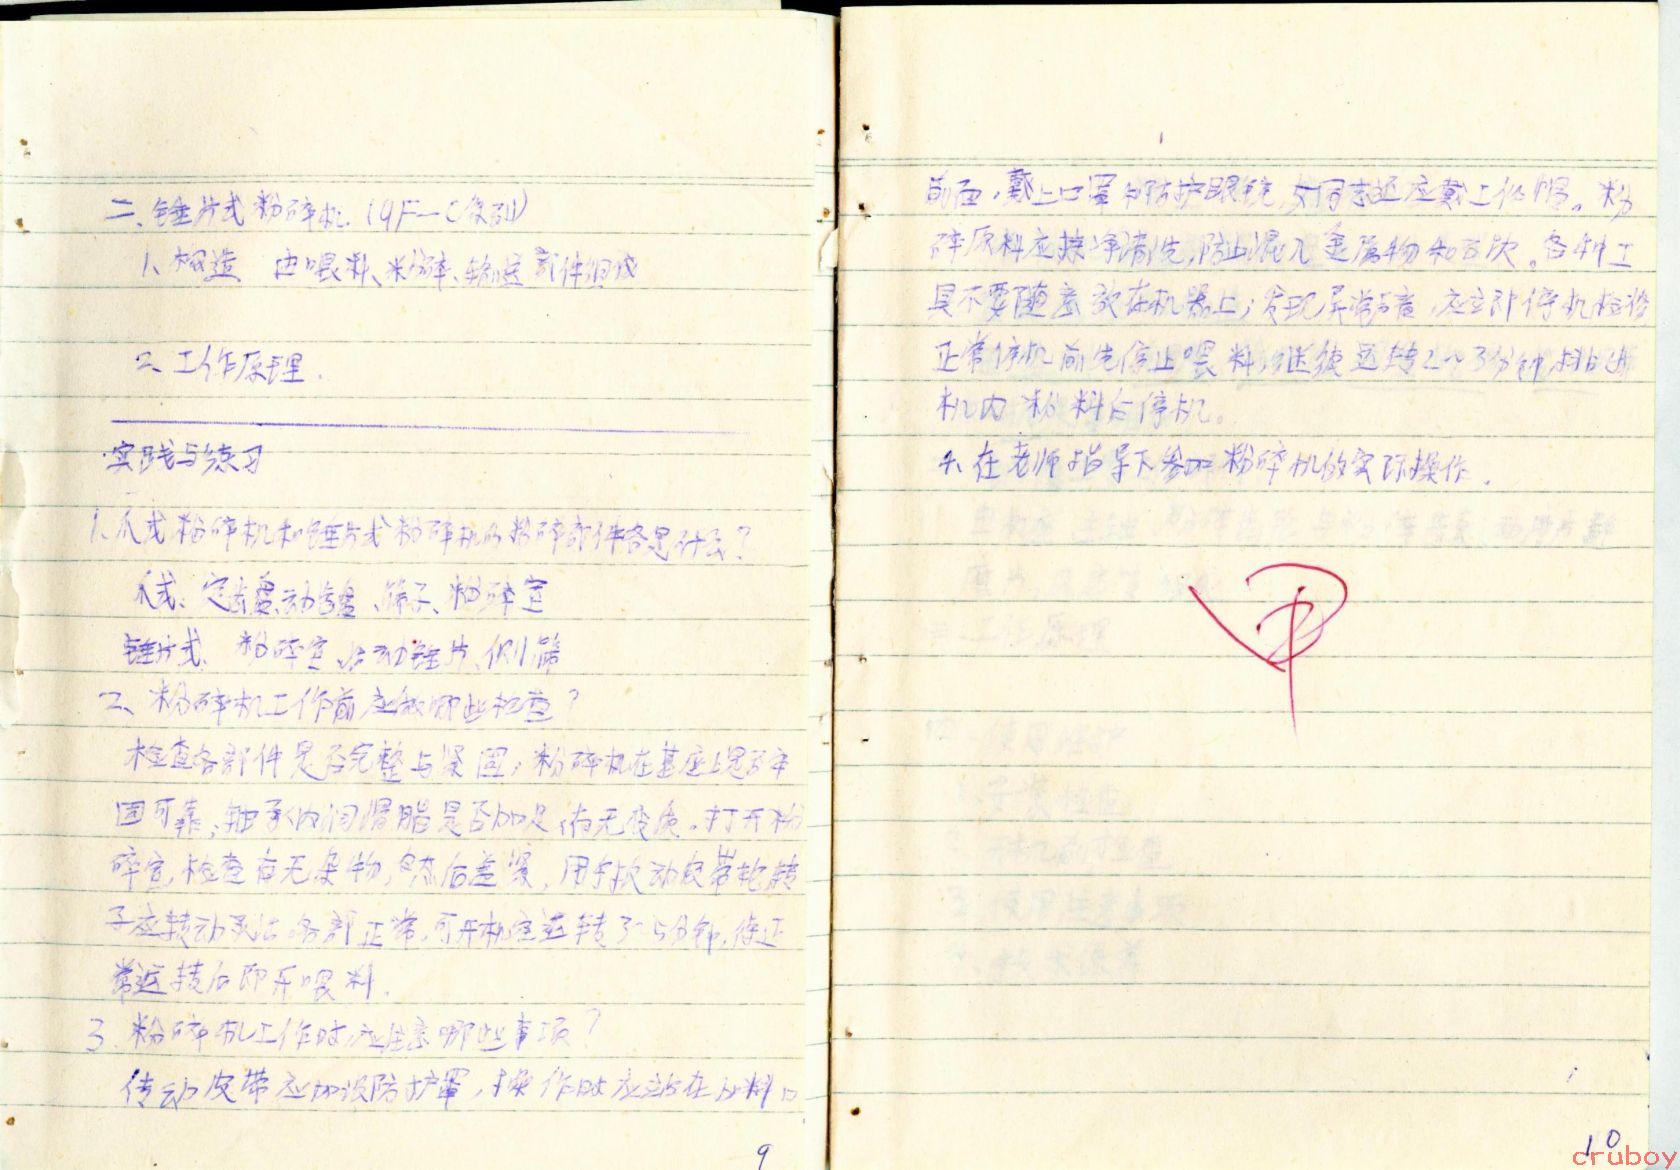 二、锤片式粉碎机(9F—C系列)
1、构造 由喂料、粉碎、输送部件组成
2、工作原理.
实践与练习
1、爪式粉碎机和锤片式粉碎机的粉碎部件各是什么?
爪式:定齿盘、动齿盘、筛子、粉碎室
锤片式、粉碎室、动锤片、侧筛
2、粉碎机工作前应做哪些检查?
检查各部件是否完整与紧固;粉碎机在基座上是否牢
固可靠;轴承内润滑脂是否加足,有无变质。打开粉
碎室,检查有无杂物,然后盖紧,用手扳动皮带轮,转
子应转动灵活,各部正常,可开机空运转3~5分钟,待正
常运转后即开喂料.
3.粉碎机工作时应注意哪些事项?
传动皮带应加设防护罩,操作时应站在进料口
前面,戴上口罩和防护眼镜,女同志还应戴工作帽。粉
碎原料应拣净清洗,防止混入金属物和石块。各种工
具不要随意放在机器上;发现异常声音,应立即停机检修
正常停机前先停止喂料,继续运转2~3分钟,
机内粉料后停机。
4、在老师指导下参加粉碎机的实际操作.
甲
9
10
cruboy